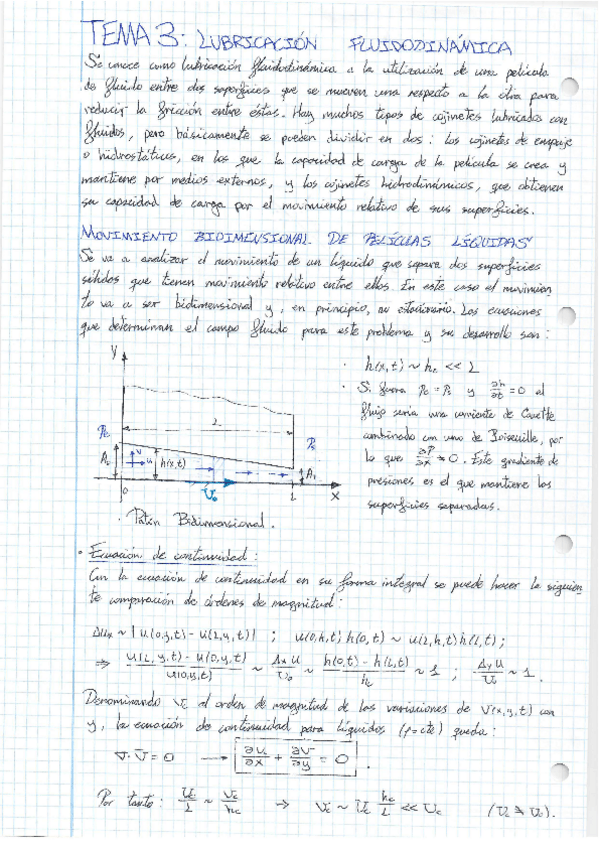 TEMA 3: LUBRICACIÓN FLUIDODINÁMICA
Se conoce como lubricación fluidodinámica a la utilización de una película
de fluido entre dos superficies que se mueven una respecto a la otra para
reducir la fricción entre éstas. Hay muchos tipos de cojinetes lubricados con
fluidos, pero básicamente se pueden dividir en dos: los cojinetes de empuje
o hidrostáticos, en los que la capacidad de carga de la película se crea y
mantiene por medios externos, y los cojinetes hidrodinámicos, que obtienen
su capacidad de carga por el movimiento relativo de sus superficies.
MOVIMIENTO BIDIMENSIONAL DE PELÍCULAS LÍQUIDAS
Se va a analizar el movimiento de un líquido que separa dos superficies
sólidos que tienen movimiento relativo entre ellos. En este caso el movimien
to va a ser bidimensional y, en principio, no estacionario. Las ecuaciones
que determinan el campo fluido para este problema y su desarrollo son:
y
L
h(x,t)
v
u
U₀
0
L
x
A₁
Patín Bidimensional.
· h(x,t) ~ hc << L
· Si fuera Pe = Ps y ∂h/∂t = 0 el
flujo sería una corriente de Couette
combinado con uno de Poiseuille, por
lo que ∂P/∂x ≠ 0. Este gradiente de
presiones es el que mantiene las
superficies separadas.
· Ecuación de continuidad:
Con la ecuación de continuidad en su forma integral se puede hacer la siguien
te comparación de órdenes de magnitud:
Δux ~ |u(0,y,t) - u(L,y,t)| ; u(0,h,t) h(0,t) ~ u(L,h,t) h(L,t);
⇒ u(L,y,t) - u(0,y,t) / u(0,y,t) ~ Δxu / U₀ ~ h(0,t) - h(L,t) / hc ~ 1 ; Δyu / U₀ ~ 1.
Denominando vc al orden de magnitud de las variaciones de v(x,y,t) con
y, la ecuación de continuidad para líquidos (ρ=cte) queda:
∇·v̄ = 0 → ∂u/∂x + ∂v/∂y = 0 .
Por tanto: Uc/L ~ vc/hc ⇒ vc ~ Uc hc/L << Uc